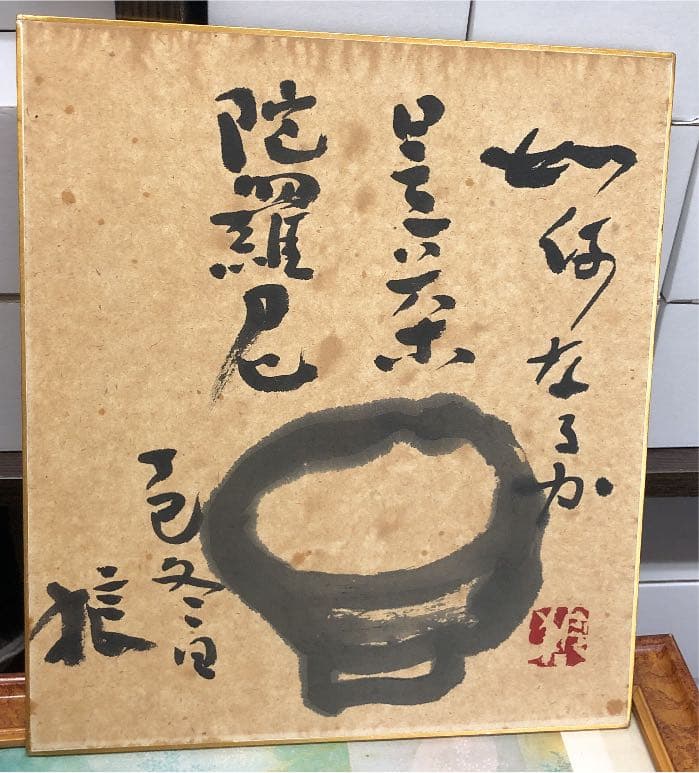 如何なるか
是六茶
陀羅尼
丁巳冬日